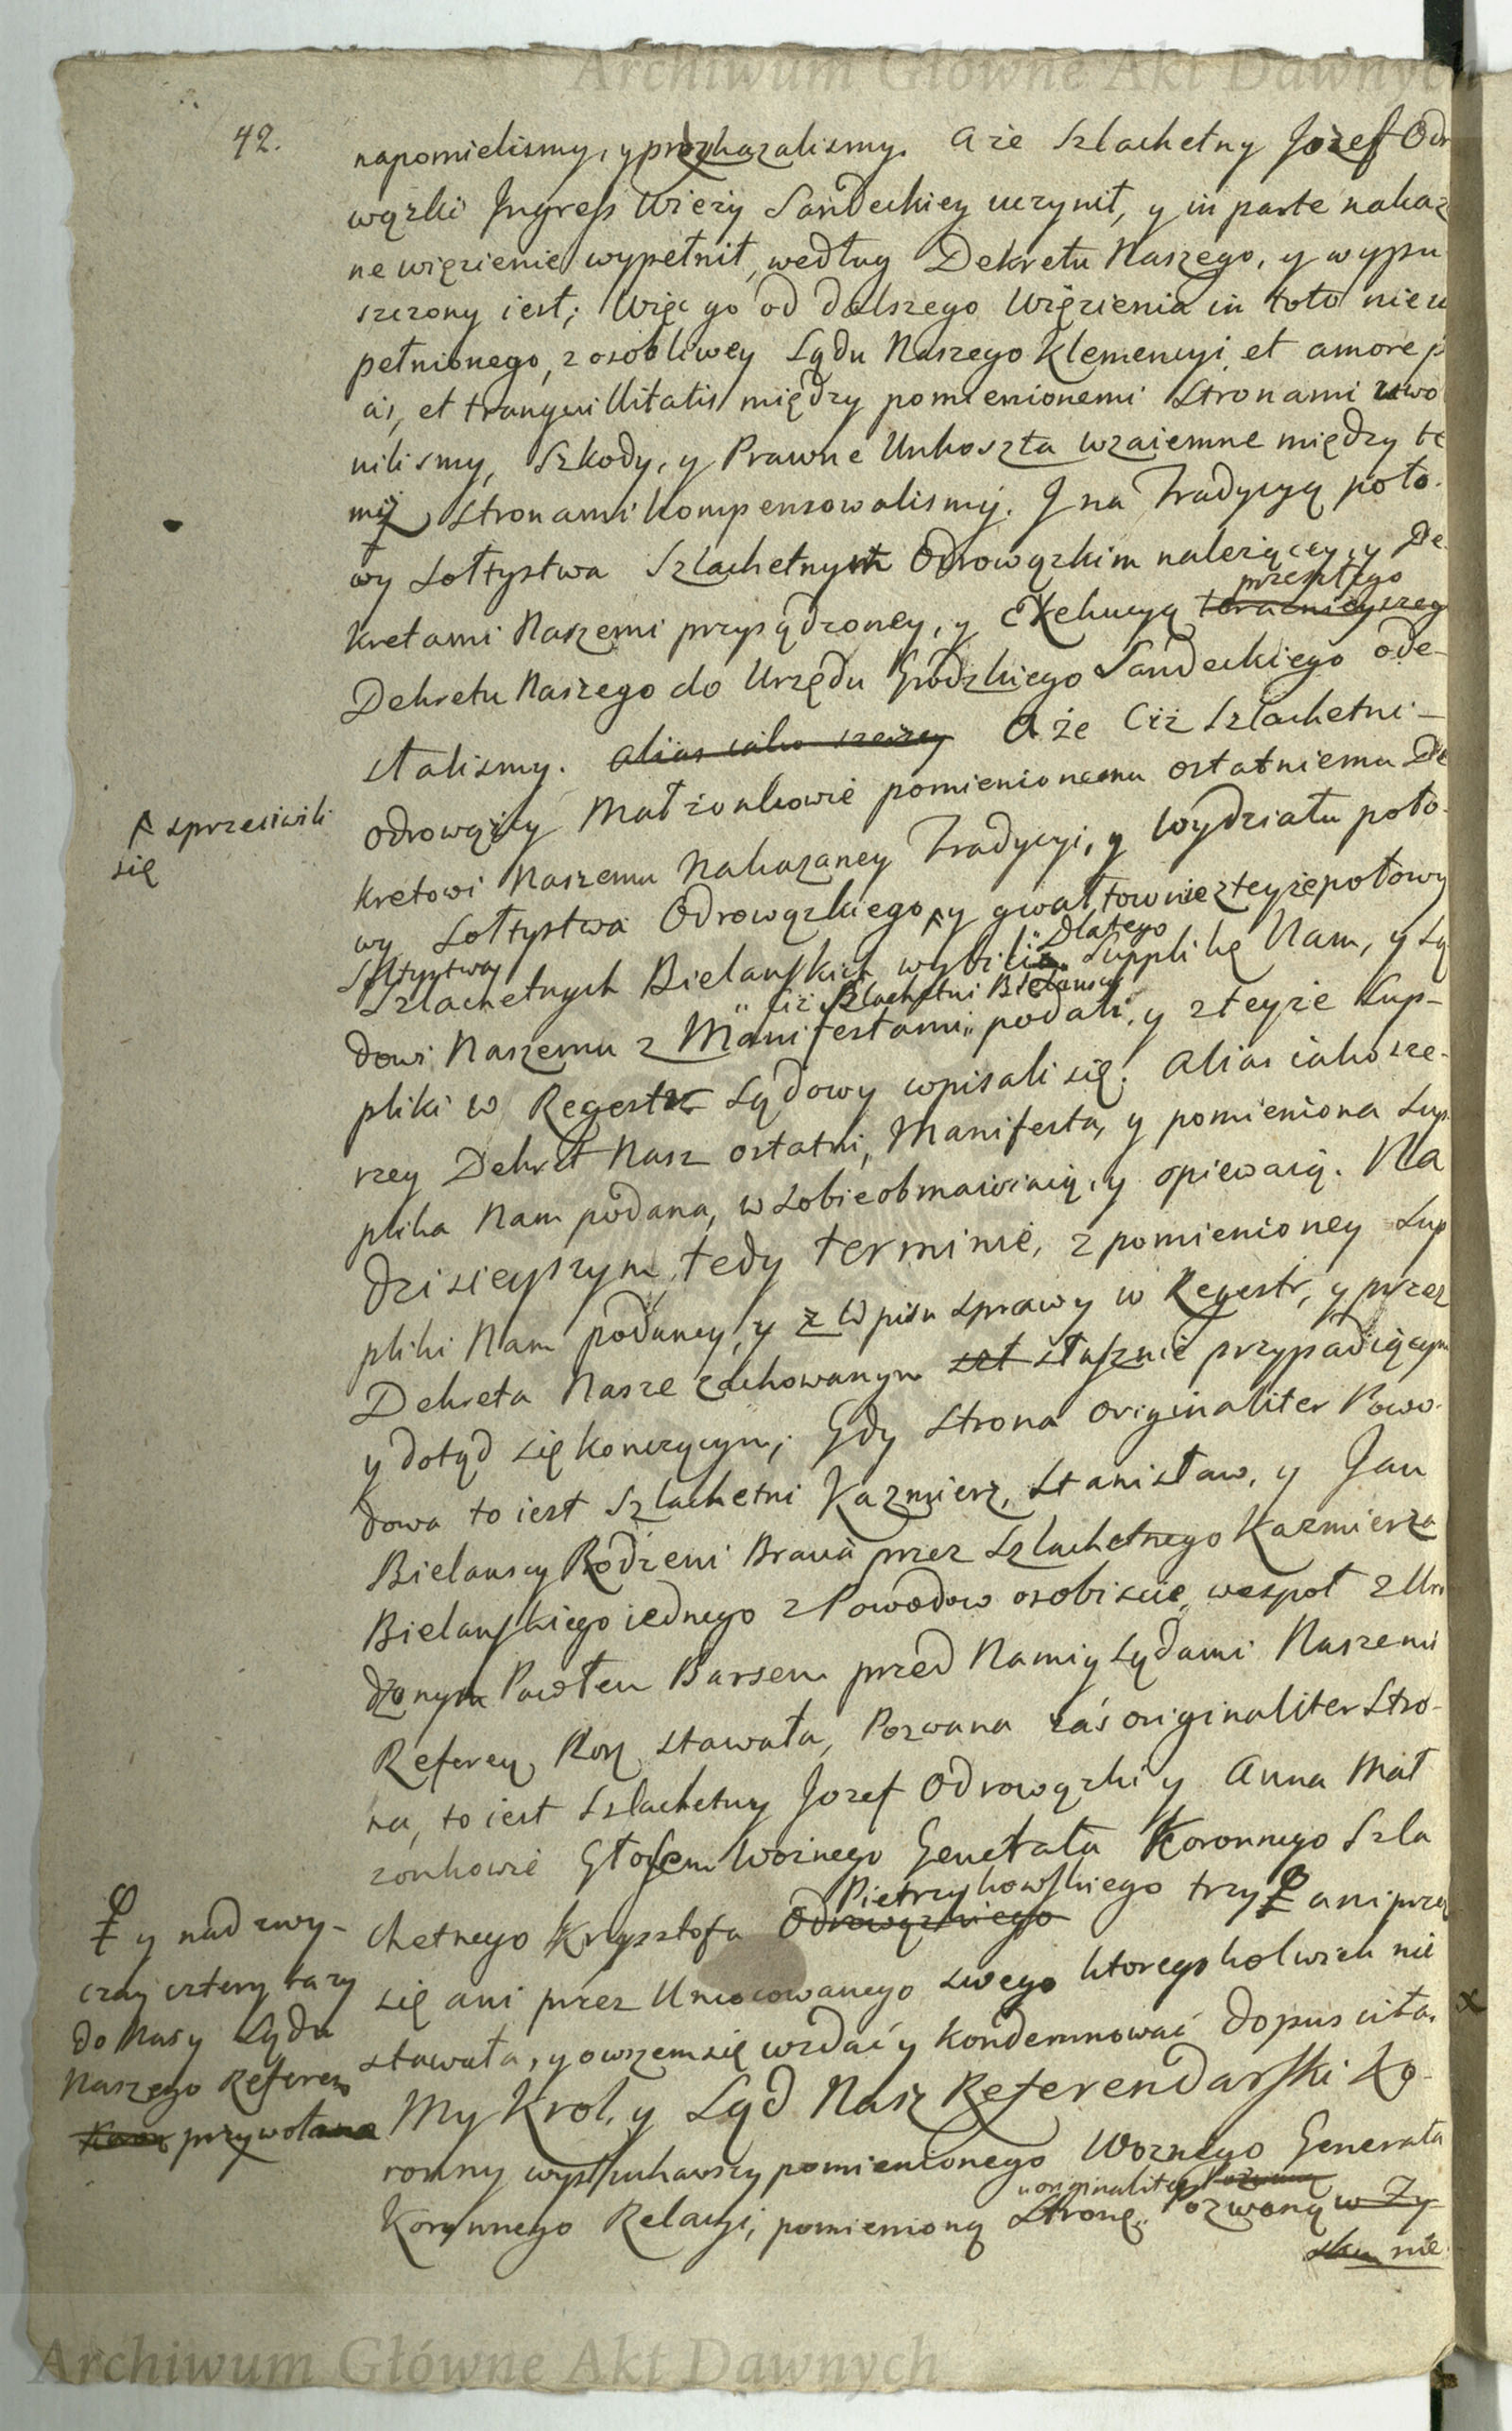 Archiwum Główne Akt Dawnych
42.
napomielismy, y przykazalismy. A że Szlachetny Jozef Odr
wązki Ingress Wieży Sandeckiey uczynił, y in parte nakaz
ne więzienie wypełnił, według Dekretu Naszego, y wypu
szczony iest; Więc go od dalszego Więzienia in toto nieu
pełnionego, z osobliwey Sądu Naszego Klemencyi et amore p
cis, et tranquillitatis między pomienionemi Stronami uwo
nilismy, Szkody, y Prawne Unkoszta wzaiemne między te
miż Stronami kompensowalismy. I na Tradycyą poło-
wy Sołtystwa Szlachetnym Odrowązkim należącey, y De-
przeszłego
kretami Naszemi przysądzoney, y Exekucyą teraznieyszeg
Dekretu Naszego do Urzędu Grodzkiego Sandeckiego ode-
słalismy. alias iako szerzey A że Ciż Szlachetni
Odrowązcy Małżonkowie pomienionemu ostatniemu De
kretowi Naszemu Nakazaney Tradycyi, y Wydziału poło-
sprzeciwili
się
wy Sołtystwa Odrowązkiego, y gwałtownie z teyże połowy
Sołtystwa Dlatego
Szlachetnych Bielanskich wybili Supplikę Nam, y Są
Ciż Szlachetni Bielanscy
dowi Naszemu z Manifestami podali, y z teyże Sup-
pliki w Regestr Sądowy wpisali się. Alias iako sze-
rzey Dekret Nasz ostatni, Manifesta, y pomieniona Sup
plika Nam podana, w sobie obmawiaią, y opiewaią. Na
dzisieyszym tedy terminie, z pomienioney Sup
pliki Nam podaney, y z Wpisu sprawy w Regestr, y przez
Dekreta Nasze zachowanym słusznie przypadaiącym
y dotąd się kończącym; Gdy Strona originaliter Powo-
dowa to iest Szlachetni Kazmierz, Stanisław, y Jan
Bielanscy Rodzeni Bracia przez Szlachetnego Kazmierza
Bielanskiego iednego z Powodow osobiscie, wespoł z Uro
dzonym Pawłem Barsem przed Nami y Sądami Naszemi
Referen Kor stawała, Pozwana zaś originaliter Stro-
na, to iest Szlachetny Jozef Odrowązki y Anna Mał
żonkowie Głosem Woźnego Generała Koronnego Szla
Pietrzykowskiego
chetnego Krysztofa Odrowązkiego trzy ani prze
y nadzwy-
czay cztery razy
do Nas y Sądu
Naszego Referen
przywołana
się ani przez Umocowanego swego ktoregokolwiek nie
stawała, y owszem się wzdać y kondemnować dopuściła.
My Krol, y Sąd Nasz Referendarski Ko-
ronny wysłuchawszy pomienionego Woznego Generała
originaliter Pozwaną
Koronnego Relacyi, pomienioną Stronę Pozwaną w Zy-
sku nie
Archiwum Główne Akt Dawnych